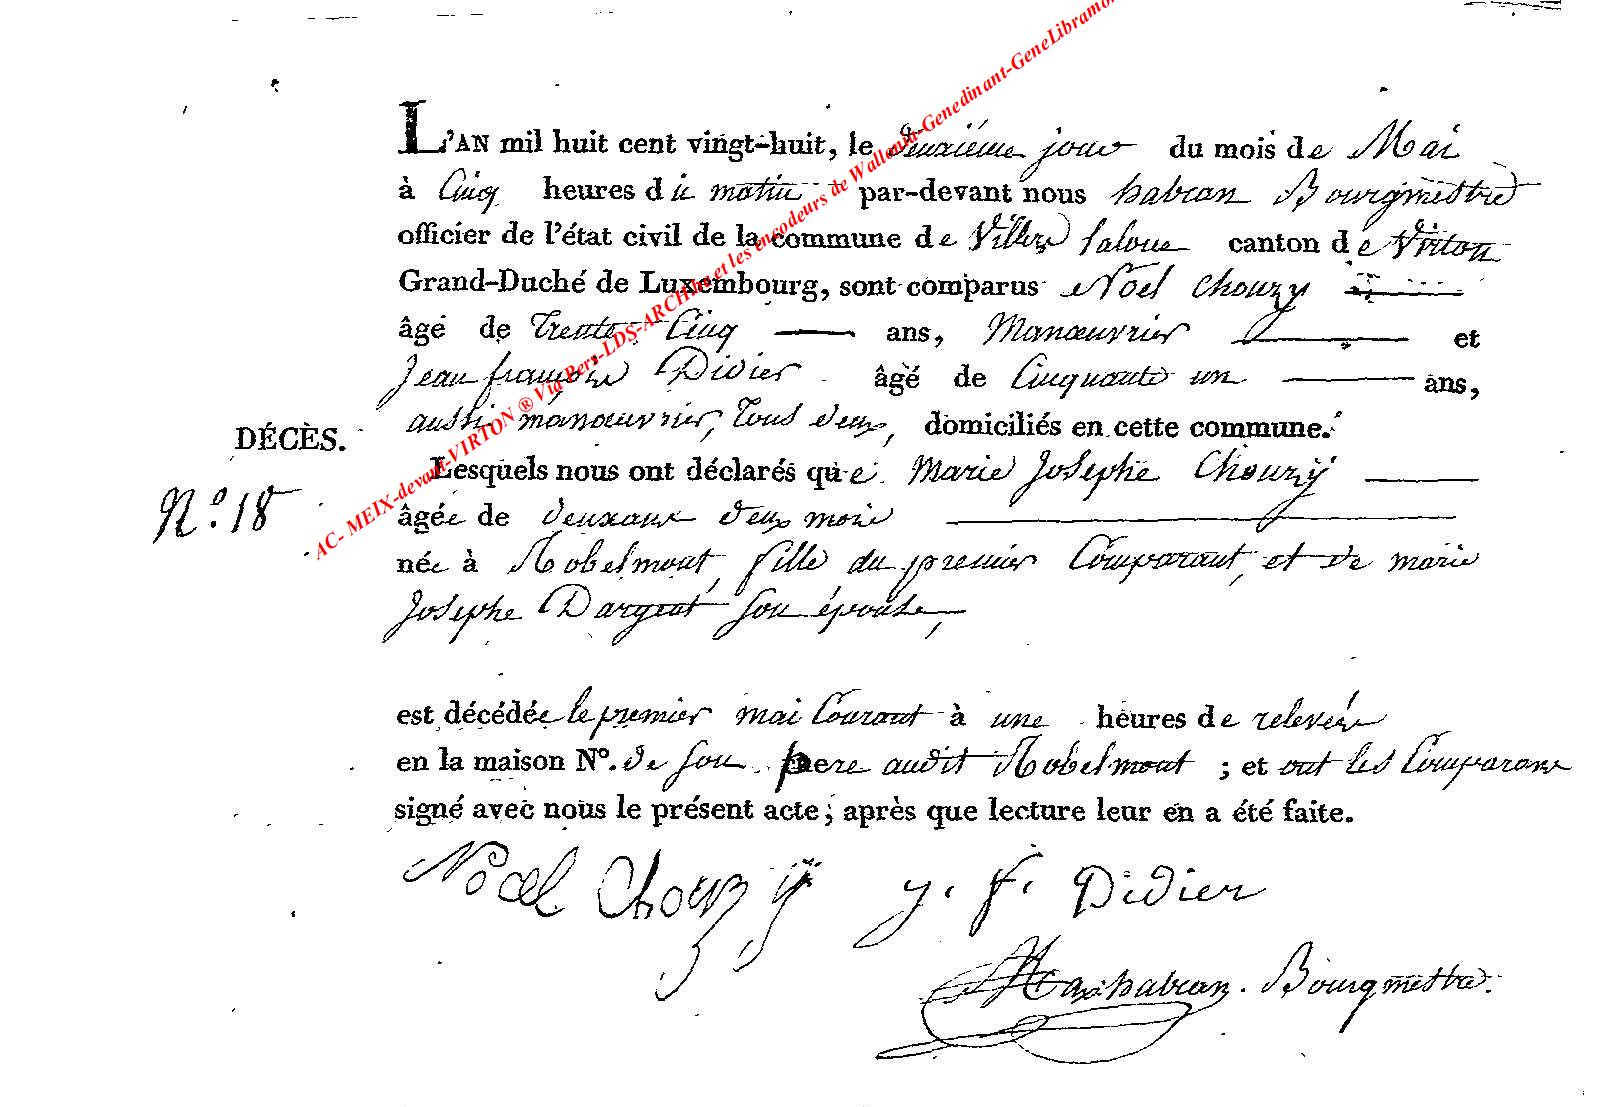 L'AN mil huit cent vingt-huit, le deuxiéme jour du mois de Mai
à Cinq heures du matin par-devant nous habran Bourgmestre
officier de l'état civil de la commune de Villers laloue canton de Virton
Grand-Duché de Luxembourg, sont comparus Noël Chouzy
âgé de Trente Cinq ans, Manœuvrier et
Jean françois Didier âgé de Cinquante un ans,
aussi manœuvrier, tous deux, domiciliés en cette commune.
DÉCÈS.
Lesquels nous ont déclarés que Marie Josephe Chouzÿ
N.° 18
âgée de deuxans deux mois
née à Robelmont, fille du premier Comparant, et de marie
Josephe Dargent son épouse,
est décédée le premier mai Courant à une heures de relevée
en la maison N°. de son pere audit Robelmont ; et ont les Comparans
signé avec nous le présent acte; après que lecture leur en a été faite.
Noel Chouzÿ j. f. Didier
habran. Bourgmestre.
AC- MEIX-devant-VIRTON ® Via Pers-LDS-ARCH et les encodeurs de Wallonia-Genedinant-GeneLibramo